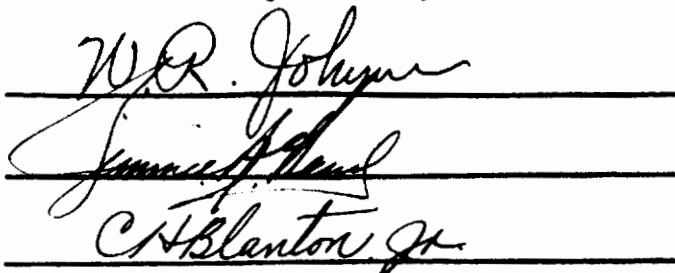 W.R. Johnson
Jimmie
C H Blanton Jr.